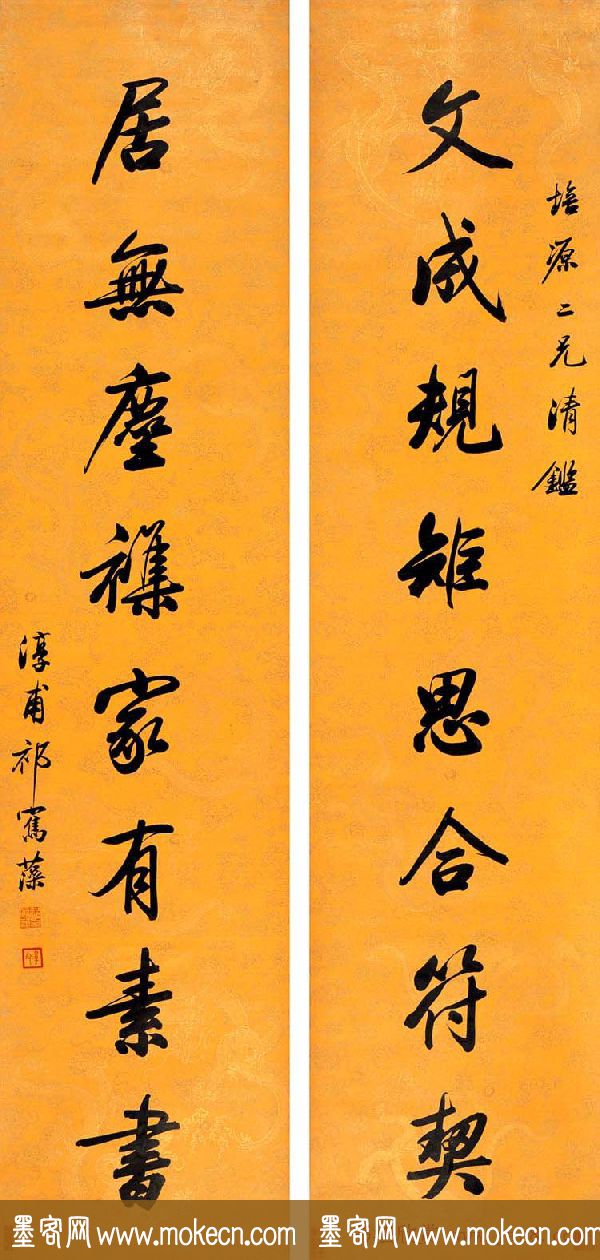 培源二兄清鑑
文成規矩思合符契
居無塵襍家有素書
淳甫祁寯藻
墨客网 www.mokecn.com 墨客网 www.mokecn.com